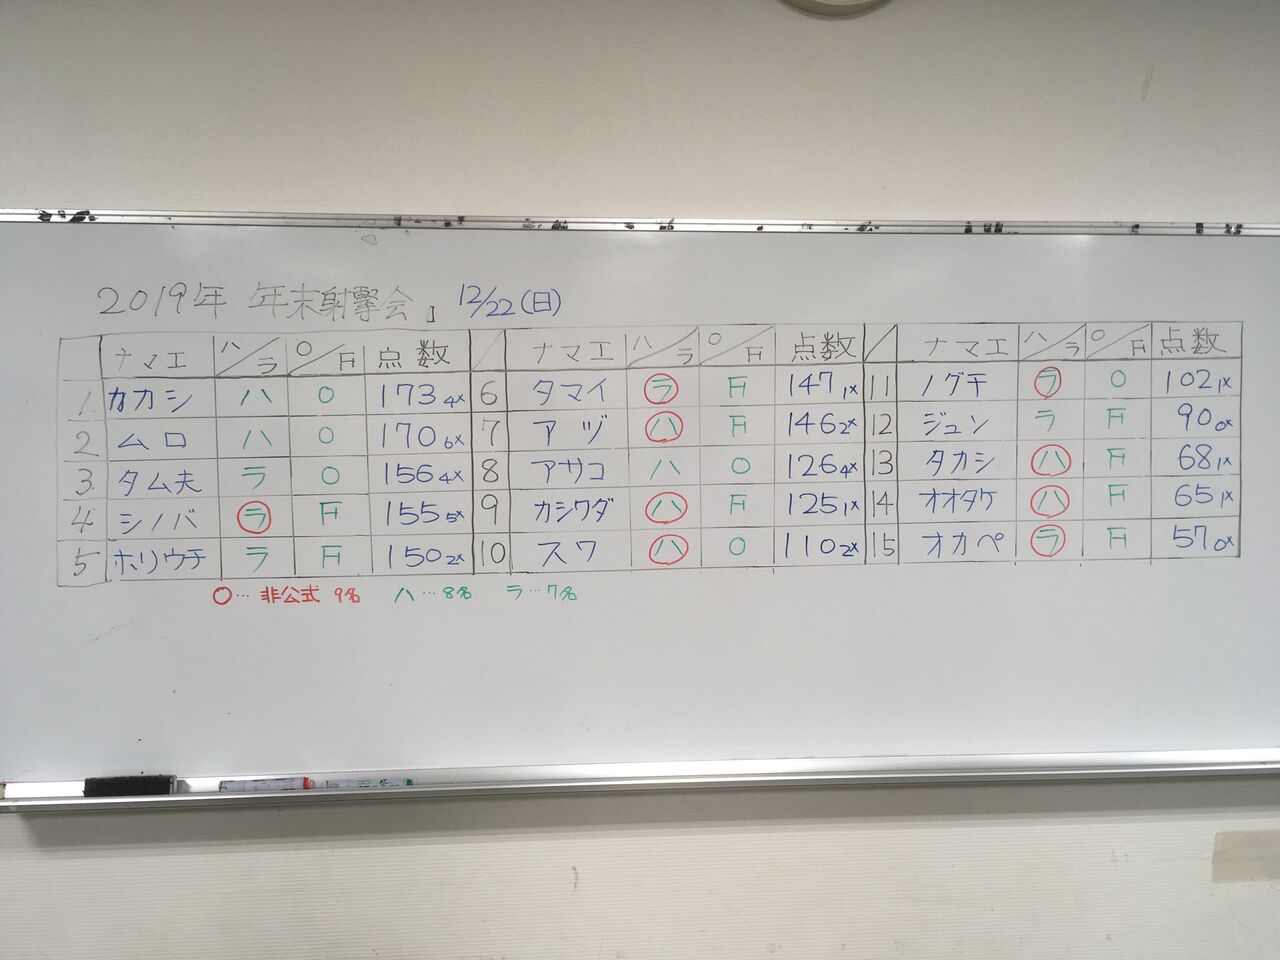 2019年 年末射撃会 』 12/22(日)
ナマエ ハ/ラ O/F 点数 / ナマエ ハ/ラ O/F 点数 / ナマエ ハ/ラ O/F 点数
1 カカシ ハ O 173 4x 6 タマイ ラ F 147 1x 11 ノグチ ラ O 102 1x
2 ムロ ハ O 170 6x 7 アヅ ハ F 146 2x 12 ジュン ラ F 90 0x
3 タム夫 ラ O 156 4x 8 アサコ ハ O 126 4x 13 タカシ ハ F 68 1x
4 シノバ ラ F 155 5x 9 カシワダ ハ F 125 1x 14 オオタケ ハ F 65 1x
5 ホリウチ ラ F 150 2x 10 スワ ハ O 110 2x 15 オカペ ラ F 57 0x
○… 非公式 9名 ハ…8名 ラ…7名